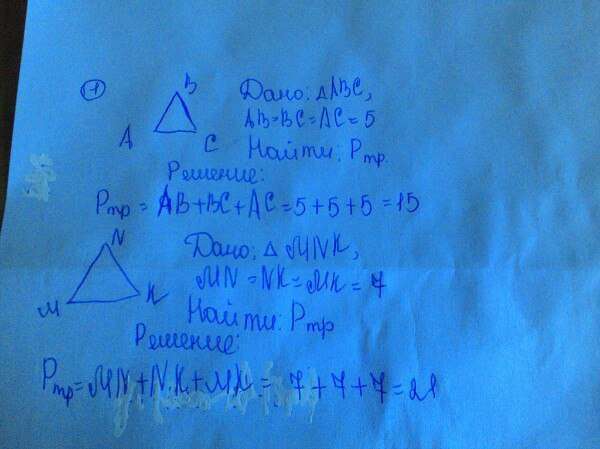 1
Дано: △ABC,
B
AB=BC=AC=5
A
C
Найти: Pтр.
Решение:
Pтр = AB+BC+AC=5+5+5=15
N
Дано: △ MNK,
MN=NK=MK=7
M
K
Найти: Pтр
Решение:
Pтр=MN+NK+MK= 7+7+7=21